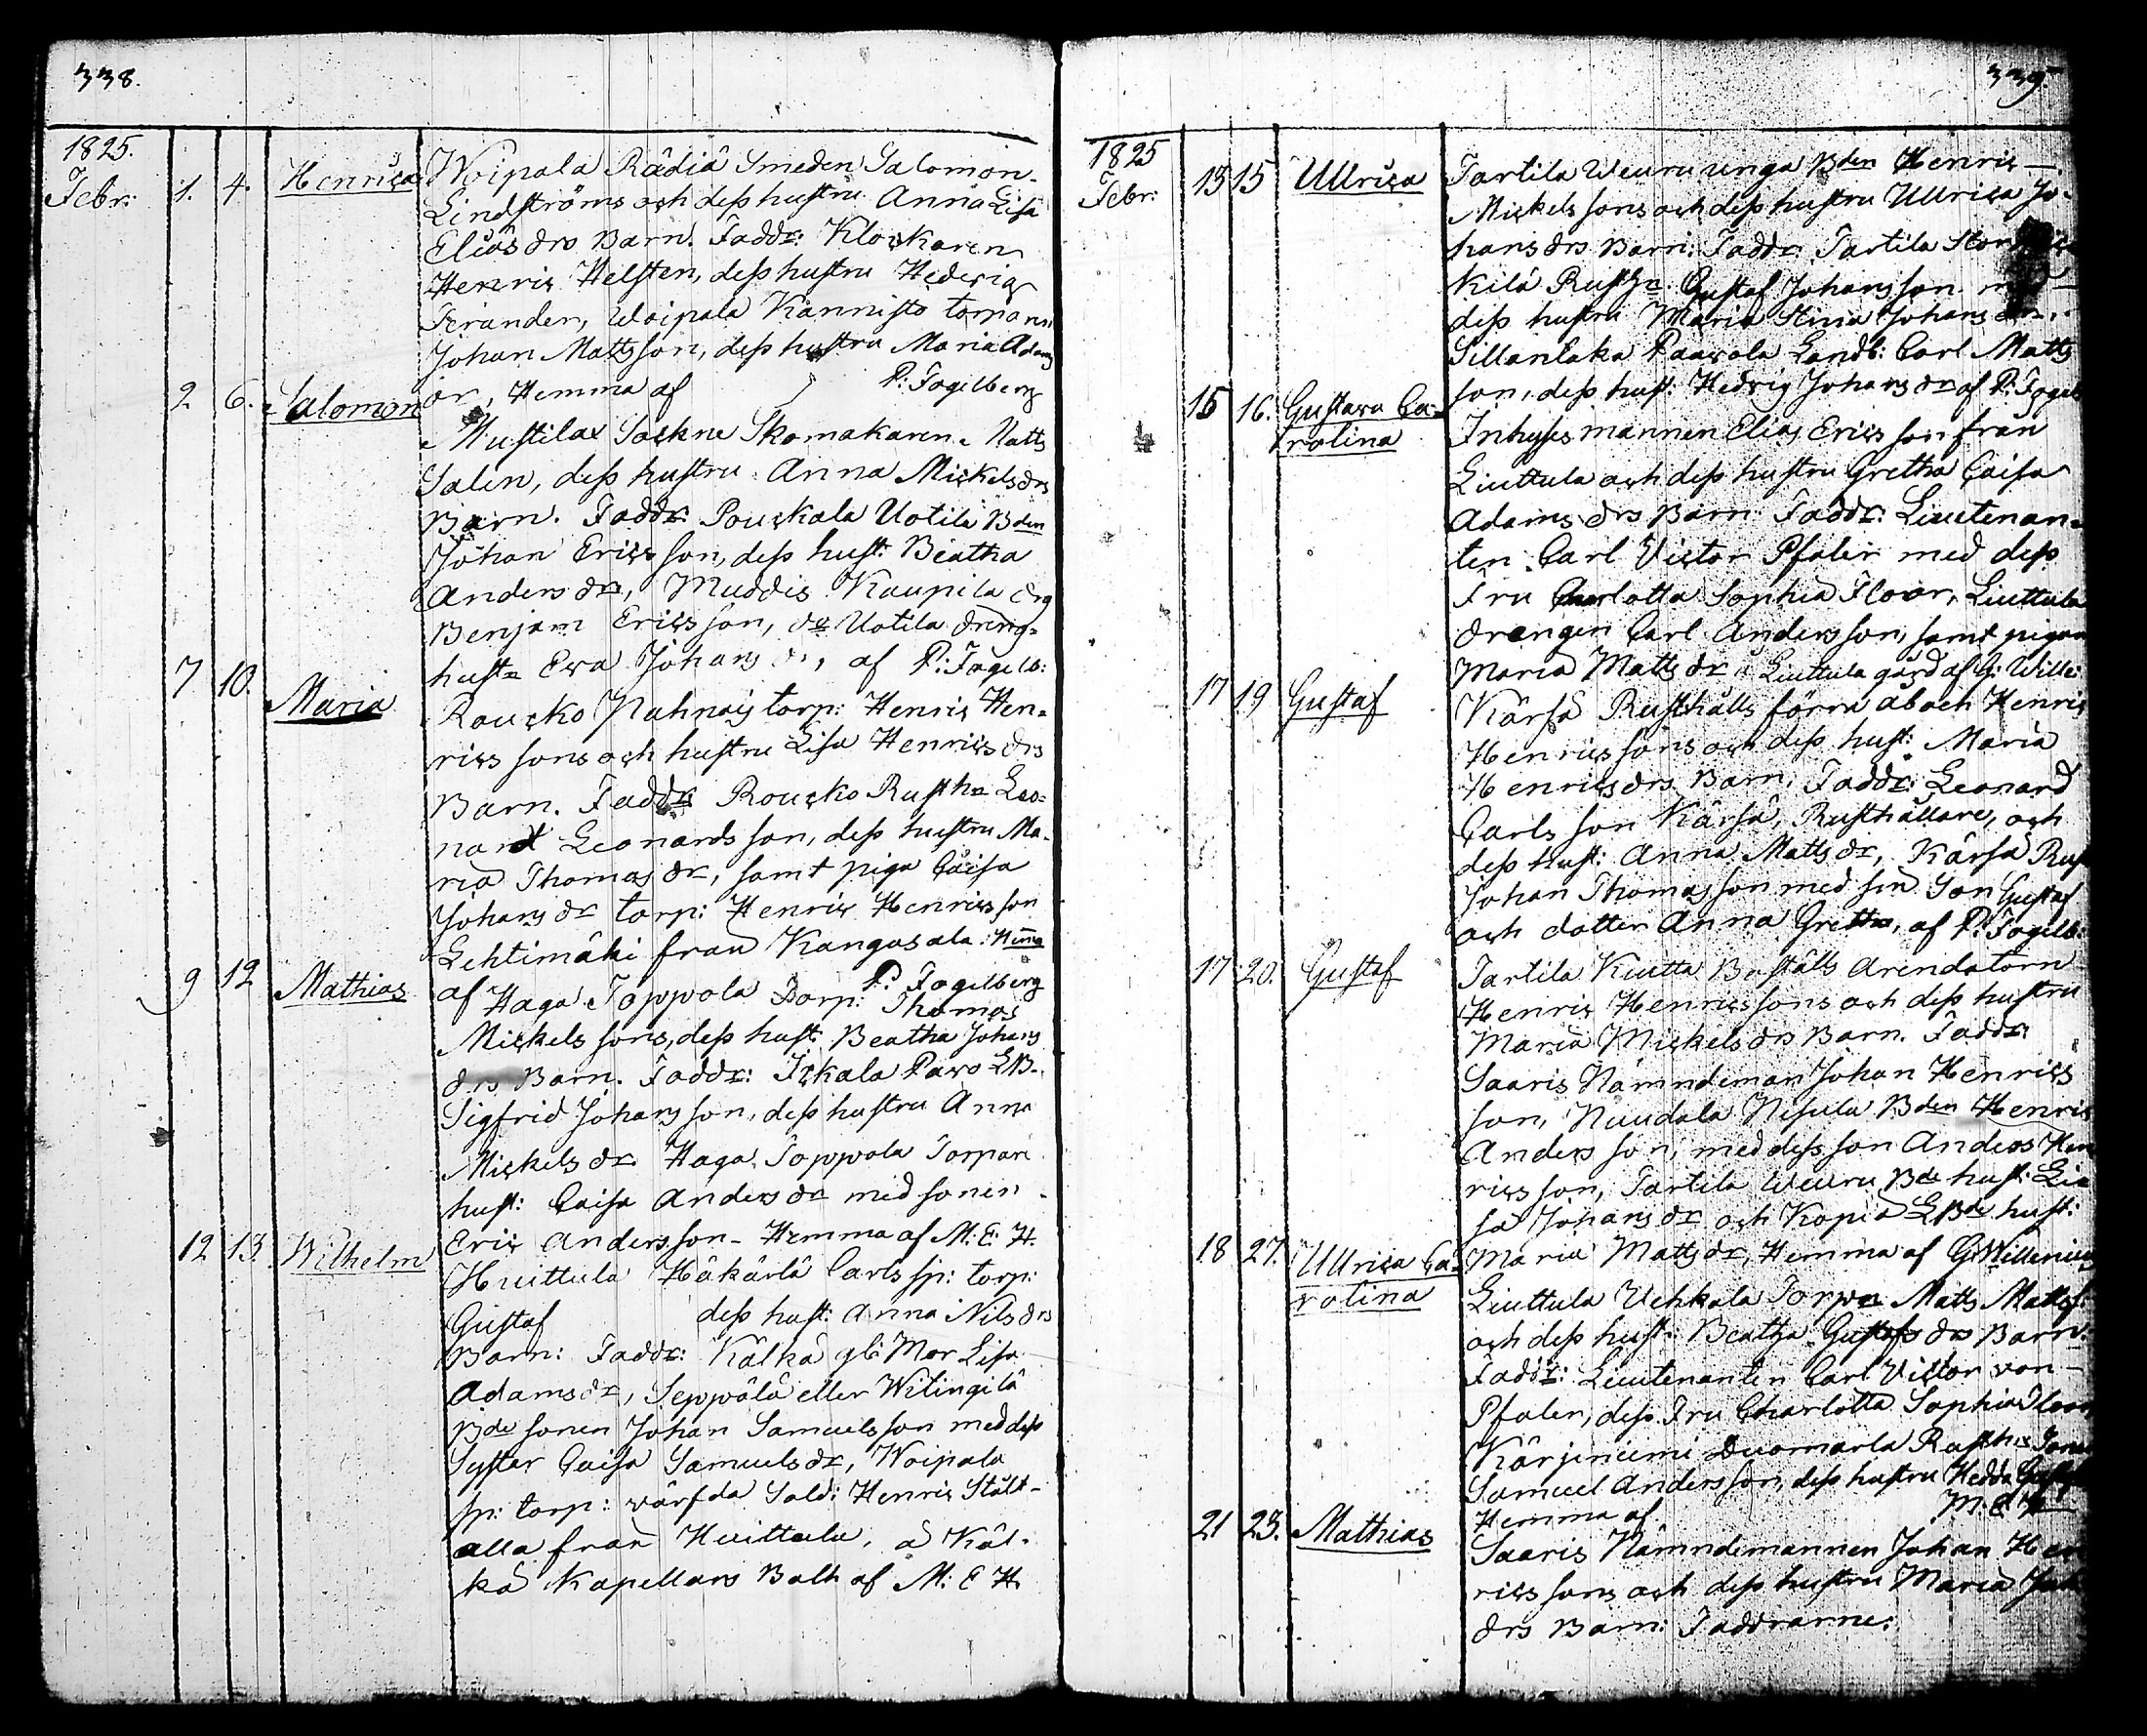 338.
1825.
Febr: 1. 4. Henrica Woipala Rädiä Smeden Salomon
Lindströms och dess hustru Anna Lisa
Eliædrs Barn. Faddr: Klockaren
Henric Helsten, dess hustru Hedevig
Woipala Kännistö torparn
Johan Mattsson, dess hustru Maria Adams
dr, Hemma af P: Fogelberg
2 6. Salomon Mustila Sockne Skomakaren Matts
Salen, dess hustru Anna Mickelsdrs
Barn. Faddr: Pouckala Uotila Bden
Johan Ericsson, dess hust: Beatha
Andersdr, Muddis Kaupila drg
Benjam Ericsson, Uotila dreng-
hustr Eva Johansdr, af P: Fogelb:
7 10. Maria Roucko Nahnais torp: Henric Hen-
ricssons och hustru Lisa Henricsdrs
Barn. Faddr: Roucko Rusthr Leo-
nard Leonardsson, dess hustru Ma-
ria Thomasdr, samt piga Caisa
Johansdr torp: Henric Henricsson
Lehtimäki från Kangasala: Hemma
af P: Fogelberg
9 12 Mathias Haga Toppola Torp: Thomas
Mickelssons, dess hust: Beatha Johans
drs Barn. Faddr: Ickala Pavo LB.
Sigfrid Johansson, dess hustru Anna
Mickelsdr. Haga Toppola Torpare
hust: Caisa Andersdr med sonen
Eric Andersson - Hemma af M: E: H.
12 13. Wilhelm Huittula Häkärlä Carls sp: torp:
Gustaf dess hust: Anna Nilsdrs
Barn: Faddr: Kälkä gl: Mor Lisa
Adamsdr, Seppälä eller Witingilä
Bde sonen Johan Samuelsson med dess
Syster Caisa Samuelsdr, Woipala
sp: torp: värfda Sold: Henric Stält-
alla från Huittula, å Käl-
kä Kapellans Bolh af M: E H.
339.
1825
Febr: 13 15 Ullrica Tartila Weuru unga Bden Henric
Mickelssons och dess hustru Ullrica Jo-
hansdrs Barn: Faddr: Tartila Stor
kilä Rusthr. Gustaf Johansson med
dess hustru Maria Stina Johansdr,
Sillanlaka Paavola Landb: Carl Matts
son, dess hust: Hedvig Johansdr af P: Fogel
15 16. Gustava Ca-
rolina Inhysesmannen Elias Ericsson från
Liuttula och dess hustru Gretha Caisa
Adamsdrs Barn: Faddr: Lieutenan-
ten Carl Victor Pfaler med dess
Fru Charlotta Sophia Floor, Liuttula
drengen Carl Andersson, samt pigan
Maria Mattsdr å Liuttula gård af G: Wille:
17 19 Gustaf Kärsä Rusthålls förra åboen Henric
Henricssons och dess hust: Maria
Henricsdrs Barn: Faddr: Leonard
Carlsson Kärsä, Rusthållare, och
dess Hust: Anna Mattsdr, Kärsä Rus
Johan Thomasson med sin Son Gustaf
och dotter Anna Gretha, af P: Fogelb:
17 20. Gustaf Tartila Kiutta Boställs Arendatorn
Henric Henricssons och dess hustru
Maria Mickelsdrs Barn. Faddr:
Saaris Nämndeman Johan Henrics
son, Nuudala Nisula Bden Henric
Andersson, med dess son Anders Hen
ricsson, Tartila Weuru Bde hust: Li
sa Johansdr och Kopia LBde hust:
Maria Mattsdr, Hemma af G: Willenius
18 27. Ullrica Ca-
rolina Liuttula Uckkola Torpn Matts Mattss:
och dess hust: Beatha Gustafsdrs Barn:
Faddr: Lieutenanten Carl Victor von
Pfaler, dess Fru Charlotta Sophia Floor,
Kärjenniemi Duomarla Rusth:
Samuel Andersson, dess hustru Hedda
Hemma af M. E H
21 23. Mathias Saaris Nämndemannen Johan Hen
ricssons och dess hustru Maria Joh
drs Barn: Faddrarne: